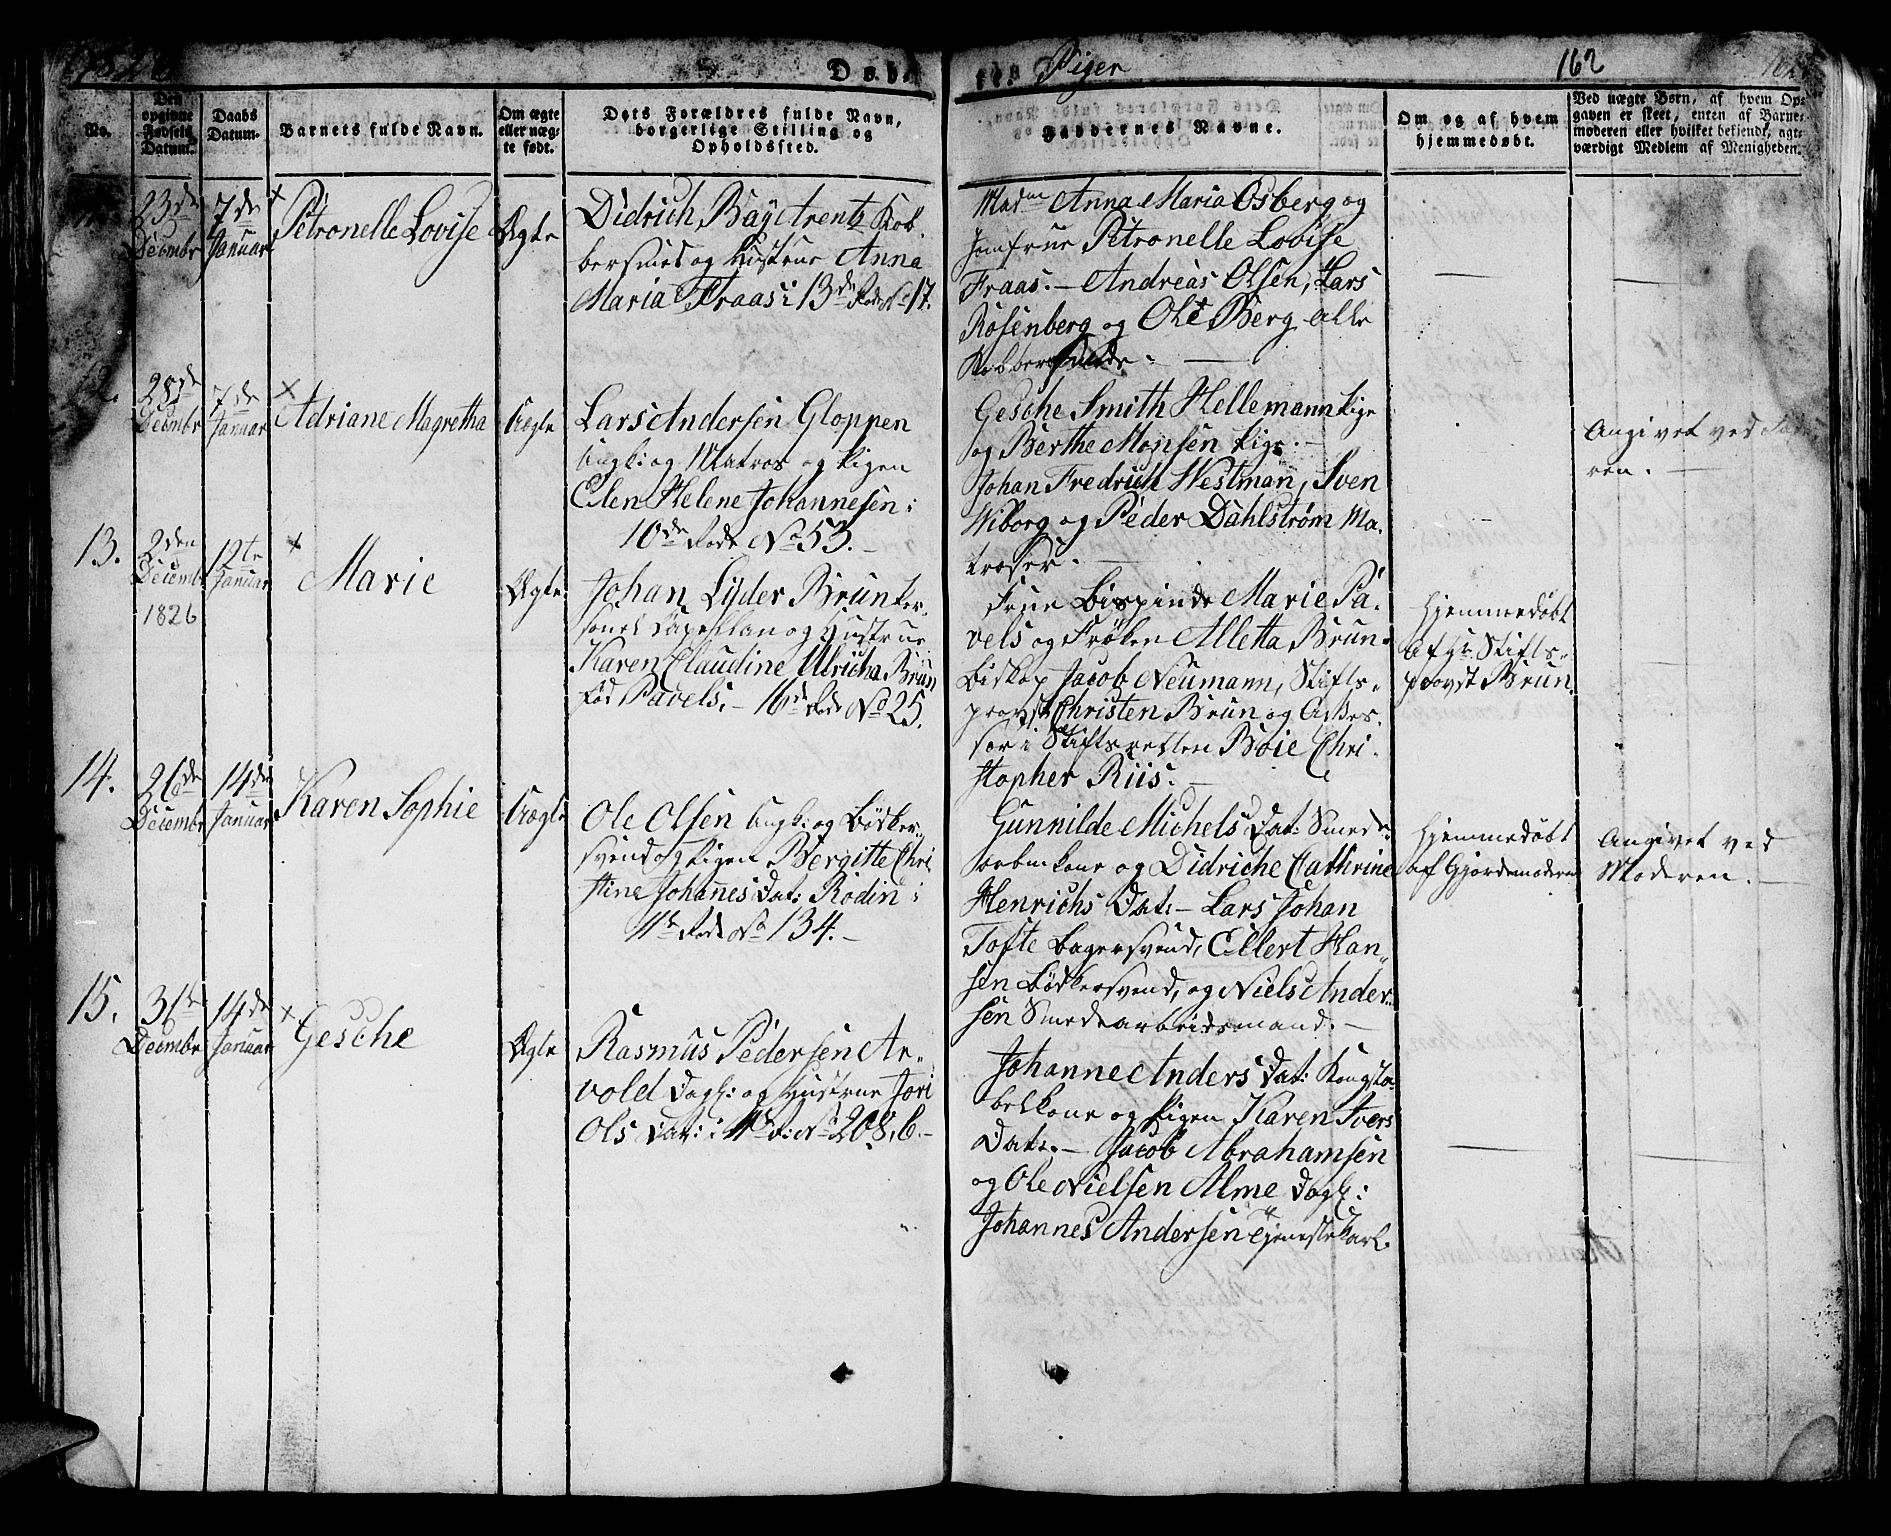 Døb te. Piger 162
No.
Den opgivne Fødsels Datum.
Daabs Datum.
Barnets fulde Navn.
Om ægte eller uæg- te født.
Dets Forældres fulde Navn, borgerlige Stilling og Opholdssted.
Faddernes Navne.
Om og af hvem hjemmedøbt.
Ved uægte Børn, af hvem Op-
gaven er skeet, enten af Barne-
moderen eller hvilket bekjendt, agt-
værdigt Medlem af Menigheden.
23de Decembr
7de Januar
Petronelle Lovise
Ægte
Didrich Bay Arentz Kob-
bersmed og Hustrue Anna
Maria Fraas i 13de Rode No 17.
Madm Anna Maria Osberg og
Jomfrue Petronelle Lovise
Fraas. – Andreas Olsen, Lars
Rosenberg og Ole Berg alle
Kobbersmede. –
12.
28de Decembr
7de Januar
Adriane Magretha
Uægte
Lars Andersen Gloppen
Ungk: og Matros og Pigen
Elen Helene Johannesen i
10de Rode No 53. –
Gesche Smith Hellemann Pige
og Berthe Monsen Pige. –
Johan Fredrich Westman, Sven
Wiborg og Peder Dahlstrøm Ma-
troser. –
Angivet ved Fad
ren. –
13.
2den Decembr 1826
12te Januar
Marie
Ægte
Johan Lyder Brun Per-
sonel Capellan og Hustrue
Karen Claudine Ulricha Brun
fød Pavels, – 16de Rode No 25.
Frue Bispinde Marie Pa-
vels og Frøken Alletta Brun
Biskop Jacob Neumann, Stifts-
provst Christen Brun og Asses-
sor i Stiftsretten Boie Chri-
stopher Riis. –
Hjemmedøbt
af Hr Stifts-
provst Brun.
14.
26de Decembr
14de Januar
Karen Sophie
Uægte
Ole Olsen Ungk: og Bødker-
svend og Pigen Bergitte Chri-
stine Johannes Dat: Rodin i
11te Rode No 134. –
Gunnilde Michels Dat: Smede-
arb: kone og Didriche Cathrine
Henrichs Dat: – Lars Johan
Tofte Bagersvend, Ellert Han-
sen Bødkersvend, og Niels Ander-
sen Smedearbeidsmand. –
Hjemmedøbt
af Gjordemoderen
Angivet ved
Moderen. –
15.
31te Decembr
14de Januar
Gesche
Ægte
Rasmus Pedersen Ar-
vold Dagk: og Hustrue Jori
Ols Dat: i 11te R: No 208, b. –
Johanne Anders Dat: Kongsta-
belkone og Pigen Karen Ivers
Dat: – Jacob Abrahamsen
og Ole Nielsen Alme Dagk:
Johannes Andersen Tjenestekarl.